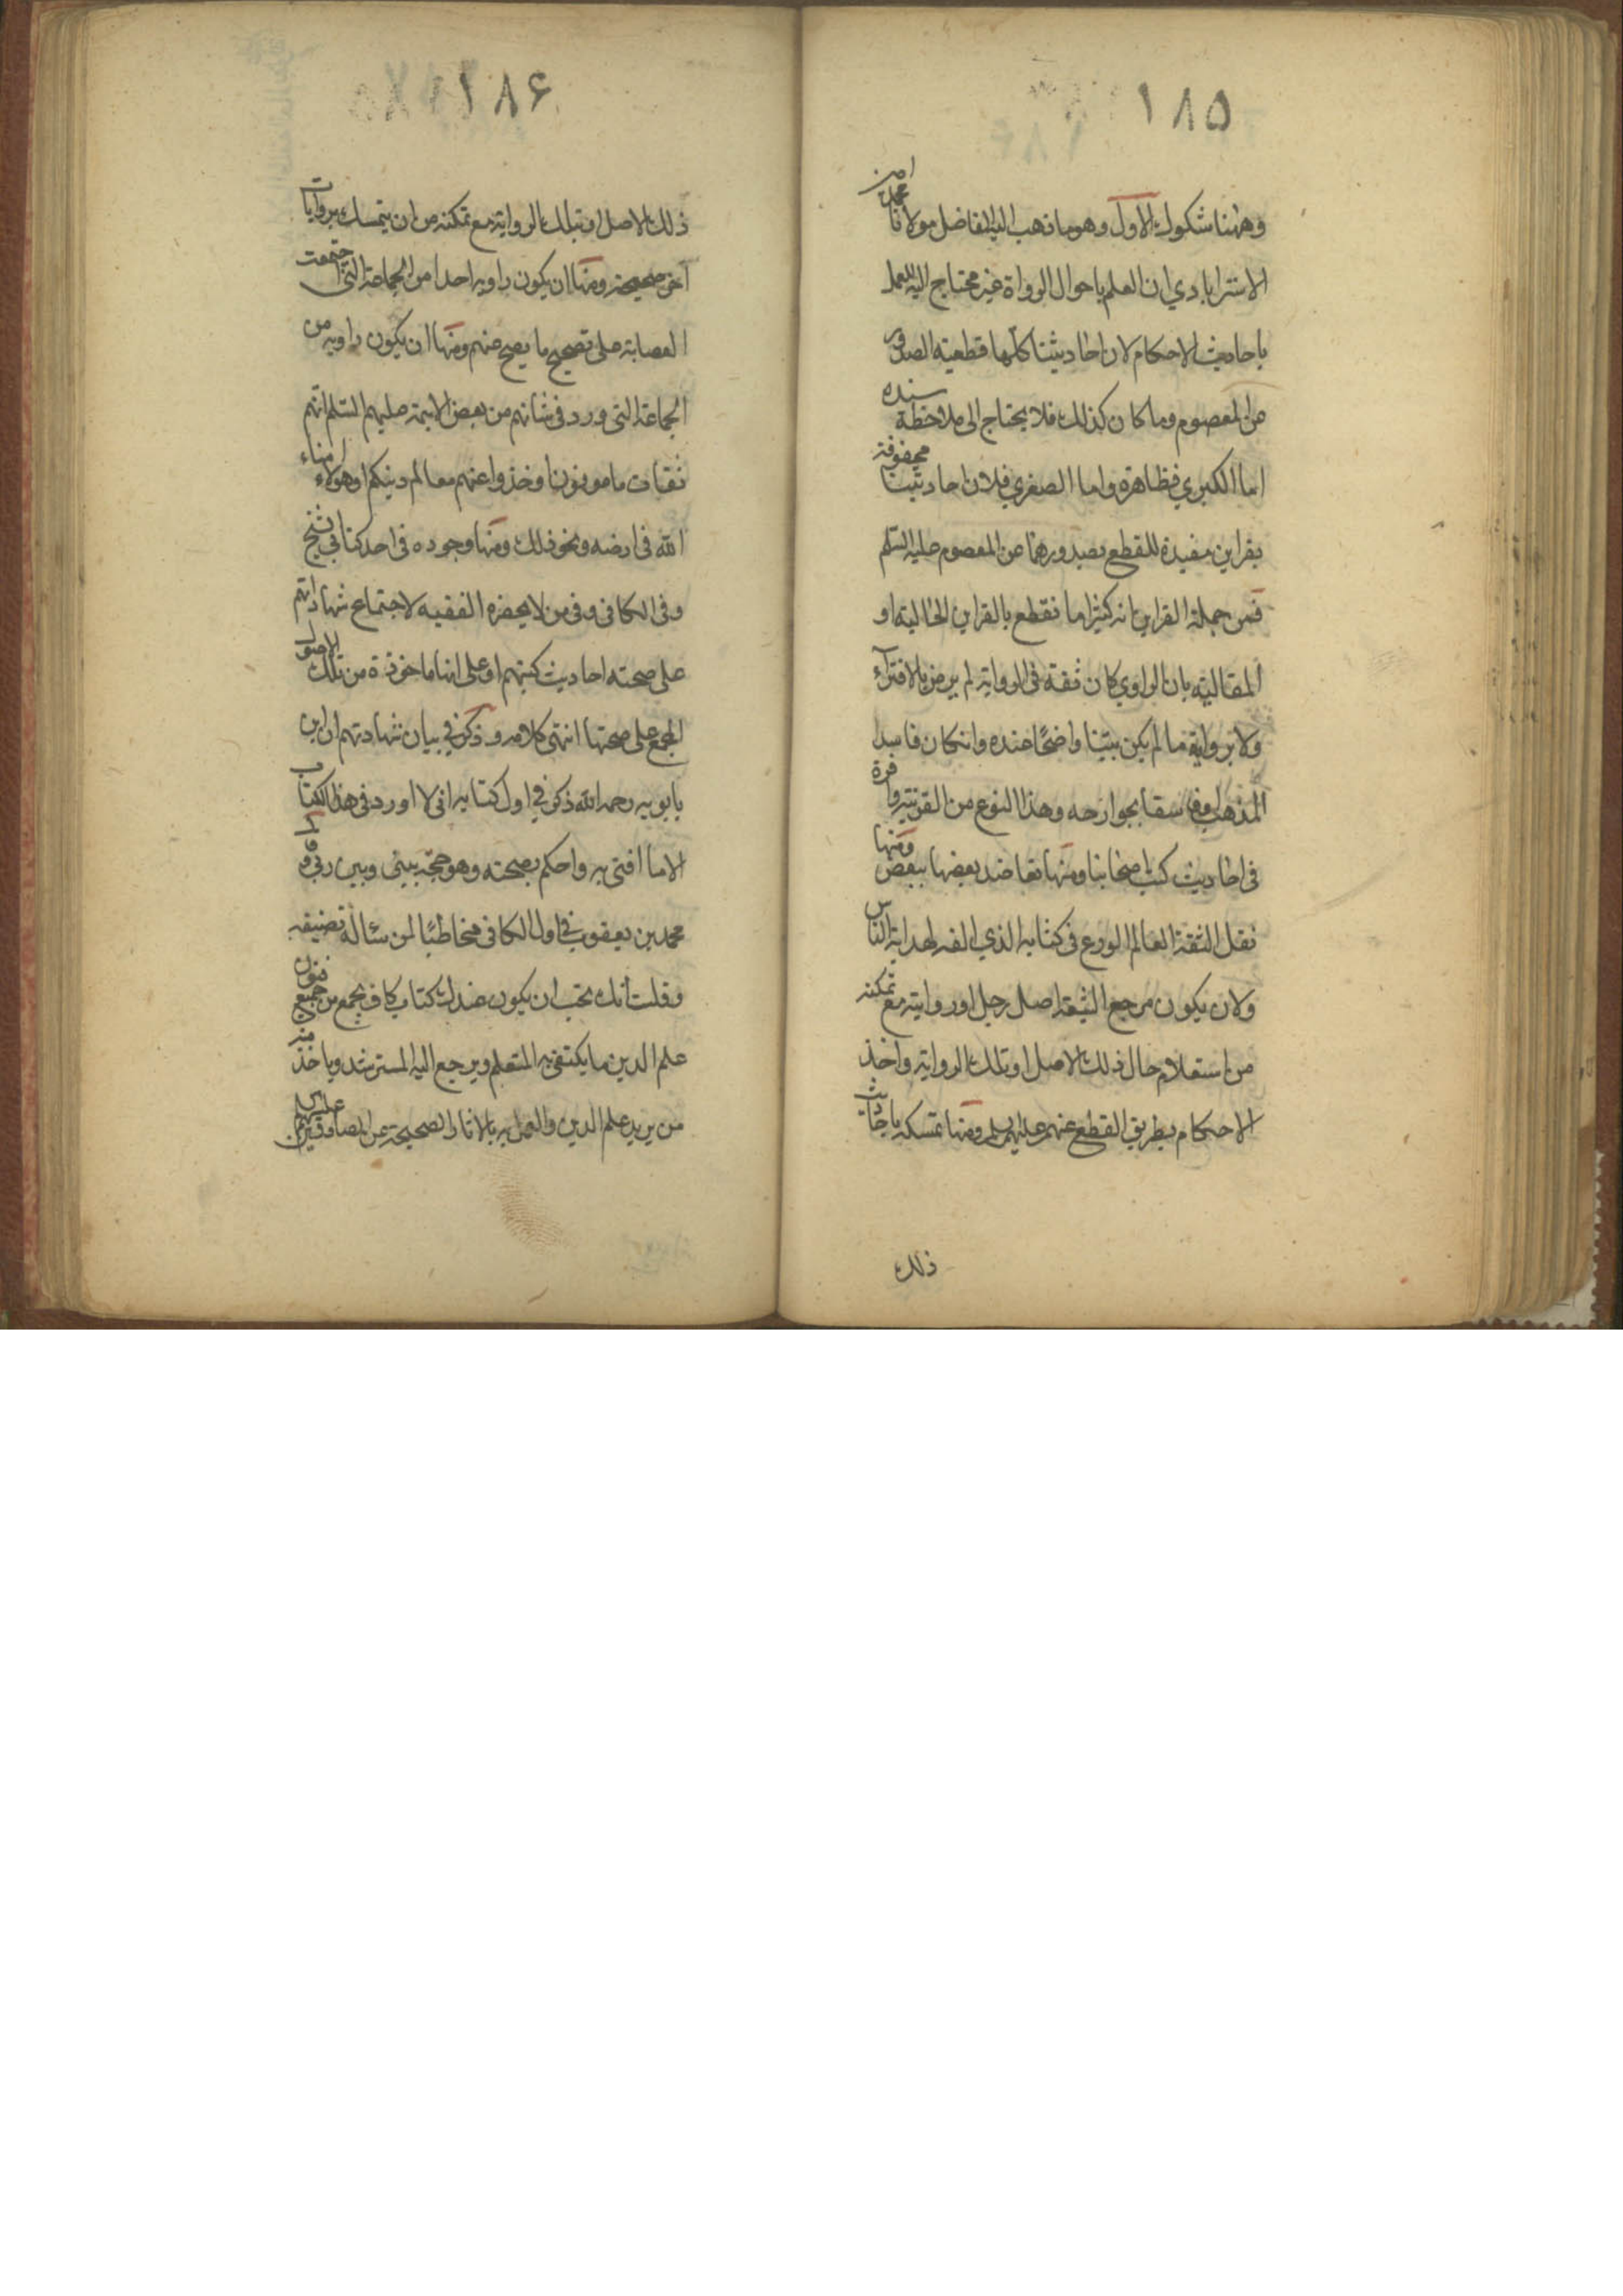 ١٨٥
وههنا شكوك الاول وهو ما ذهب اليه الفاضل مولانا محمد امين
الاسترابادي ان العلم باحوال الرواة غير محتاج اليه للعمل
باحاديث الاحكام لان احاديثنا كلها قطعية الصدور
عن المعصوم وما كان كذلك فلا يحتاج الى ملاحظة سنده
اما الكبرى فظاهرة واما الصغرى فلان احاديثنا محفوفة
بقراين مفيدة للقطع بصدورها عن المعصوم عليه السلم
فمن جملة القراين انه كثيرا ما نقطع بالقراين الحالية او
المقالية بان الراوي كان ثقة في الرواية لم يرض بالافتراء
ولا برواية ما لم يكن بينا واضحا عنده وانكان فاسد
المذهب او فاسقا بجوارحه وهذا النوع من القرينة وافرة
في احاديث كتب اصحابنا ومنها تعاضد بعضها ببعض ومنها
نقل الثقة العالم الورع في كتابه الذي الفه لهداية الناس
ولان يكون مرجع الشيعة اصل رجل او روايته مع تمكنه
من استعلام حال ذلك الاصل او تلك الرواية واخذ
الاحكام بطريق القطع عنهم عليهم سلم ومنها تمسكه باحاديث
ذلك
١٨۶
ذلك الاصل او بتلك الرواية مع تمكنه من ان يتمسك بروايات
اخر صحيحة ومنها ان يكون راويه احدا من الجماعة التي اجتمعت
العصابة على تصحيح ما يصح عنهم ومنها ان يكون راويه من
الجماعة التي ورد في شانهم من بعض الايمة عليهم السلم انهم
ثقات مامونون او خذوا عنهم معالم دينكم او هولاء امناء
الله في ارضه ونحو ذلك ومنها وجوده في احد كتابي الشيخ
وفي الكافي وفي من لا يحضره الفقيه لاجتماع شهاداتهم
على صحة احاديث كتبهم او على انها ماخوذة من تلك الاصول
المجمع على صحتها انتهى كلامه وذكر في بيان شهادتهم ان ابن
بابويه رحمه الله ذكر في اول كتابه اني لا اورد في هذا الكتاب
الا ما افتى به واحكم بصحته وهو حجة بيني وبين ربي وقا
محمد بن يعقوب في اول الكافي مخاطبا لمن سئاله تصنيفه
وقلت انك تحب ان يكون عندك كتاب كاف يجمع من جميع فنون
علم الدين ما يكتفي به المتعلم ويرجع اليه المسترشد وياخذ منه
من يريد علم الدين والعمل به بالاثار الصحيحة عن الصادقين عليهم سلم